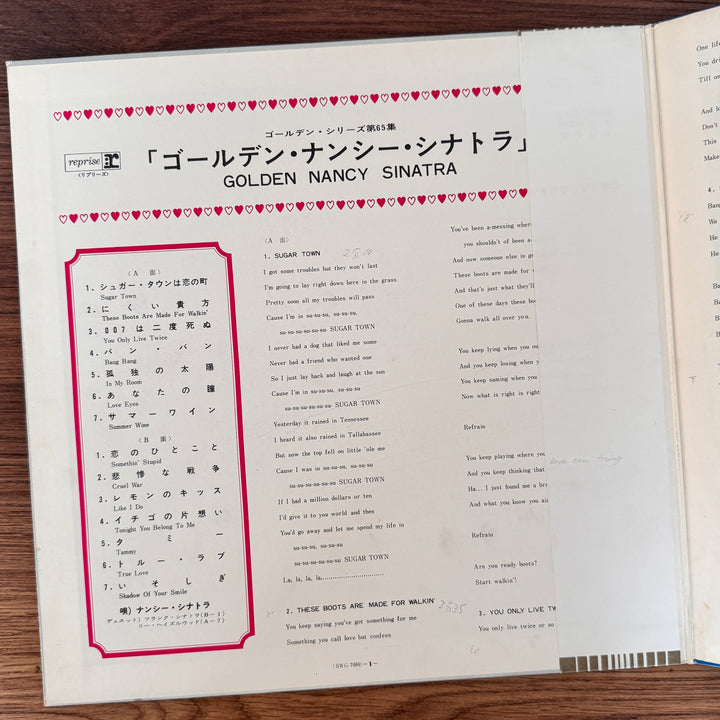 ゴールデン・シリーズ第65集
reprise
(リプリーズ)
「ゴールデン・ナンシー・シナトラ」
GOLDEN NANCY SINATRA
〈A 面〉
1. シュガー・タウンは恋の町
Sugar Town
2. にくい貴方
These Boots Are Made For Walkin'
3. 007は二度死ぬ
You Only Live Twice
4. バン・バン
Bang Bang
5. 孤独の太陽
In My Room
6. あなたの瞳
Love Eyes
7. サマーワイン
Summer Wine
〈B 面〉
1. 恋のひとこと
Somethin' Stupid
2. 悲惨な戦争
Cruel War
3. レモンのキッス
Like I Do
4. イチゴの片想い
Tonight You Belong To Me
5. タミー
Tammy
6. トルー・ラブ
True Love
7. いそしぎ
Shadow Of Your Smile
唄) ナンシー・シナトラ
デュエット) フランク・シナトラ(B-1)
リー・ヘイズルウッド(A-7)
〈A 面〉
1. SUGAR TOWN
I got some troubles but they won't last
I'm going to lay right down here in the grass
Pretty soon all my troubles will pass
Cause I'm in su-su-su, su-su-su,
su-su-su-su-su-su SUGAR TOWN
I never had a dog that liked me some
Never had a friend who wanted one
So I just lay back and laugh at the sun
Cause I'm in su-su-su, su-su-su
su-su-su-su-su-su SUGAR TOWN
Yesterday it rained in Tennessee
I heard it also rained in Tallahassee
But now the top fell on little 'ole me
Cause I was in su-su-su, su-su-su,
su-su-su-su-su-su SUGAR TOWN
If I had a million dollars or ten
I'd give it to you world and then
You'd go away and let me spend my life in
su-su-su, su-su-su
su-su-su-su-su-su SUGAR TOWN
La, la, la, la,
2. THESE BOOTS ARE MADE FOR WALKIN'
You keep saying you've got something for me
Something you call love but confess
You've been a-messing
you shouldn't of been a-
And now someone else is
These boots are made for
And that's just what they'll
One of these days these
Gonna walk all over you.
You keep lying when you
And you keep losing when
You keep saming when you
Now what is right is right
Refrain
You keep playing where
And you keep thinking that
Ha... I just found me a
And what you know you
Refrain
Are you ready boots?
Start walkin'!
3. YOU ONLY LIVE
You only live twice or so
(SWG 7080) -1-
love can bring
One
You
Till
And
Don't
This
Make
4.
Bang
We
He
He
Bang